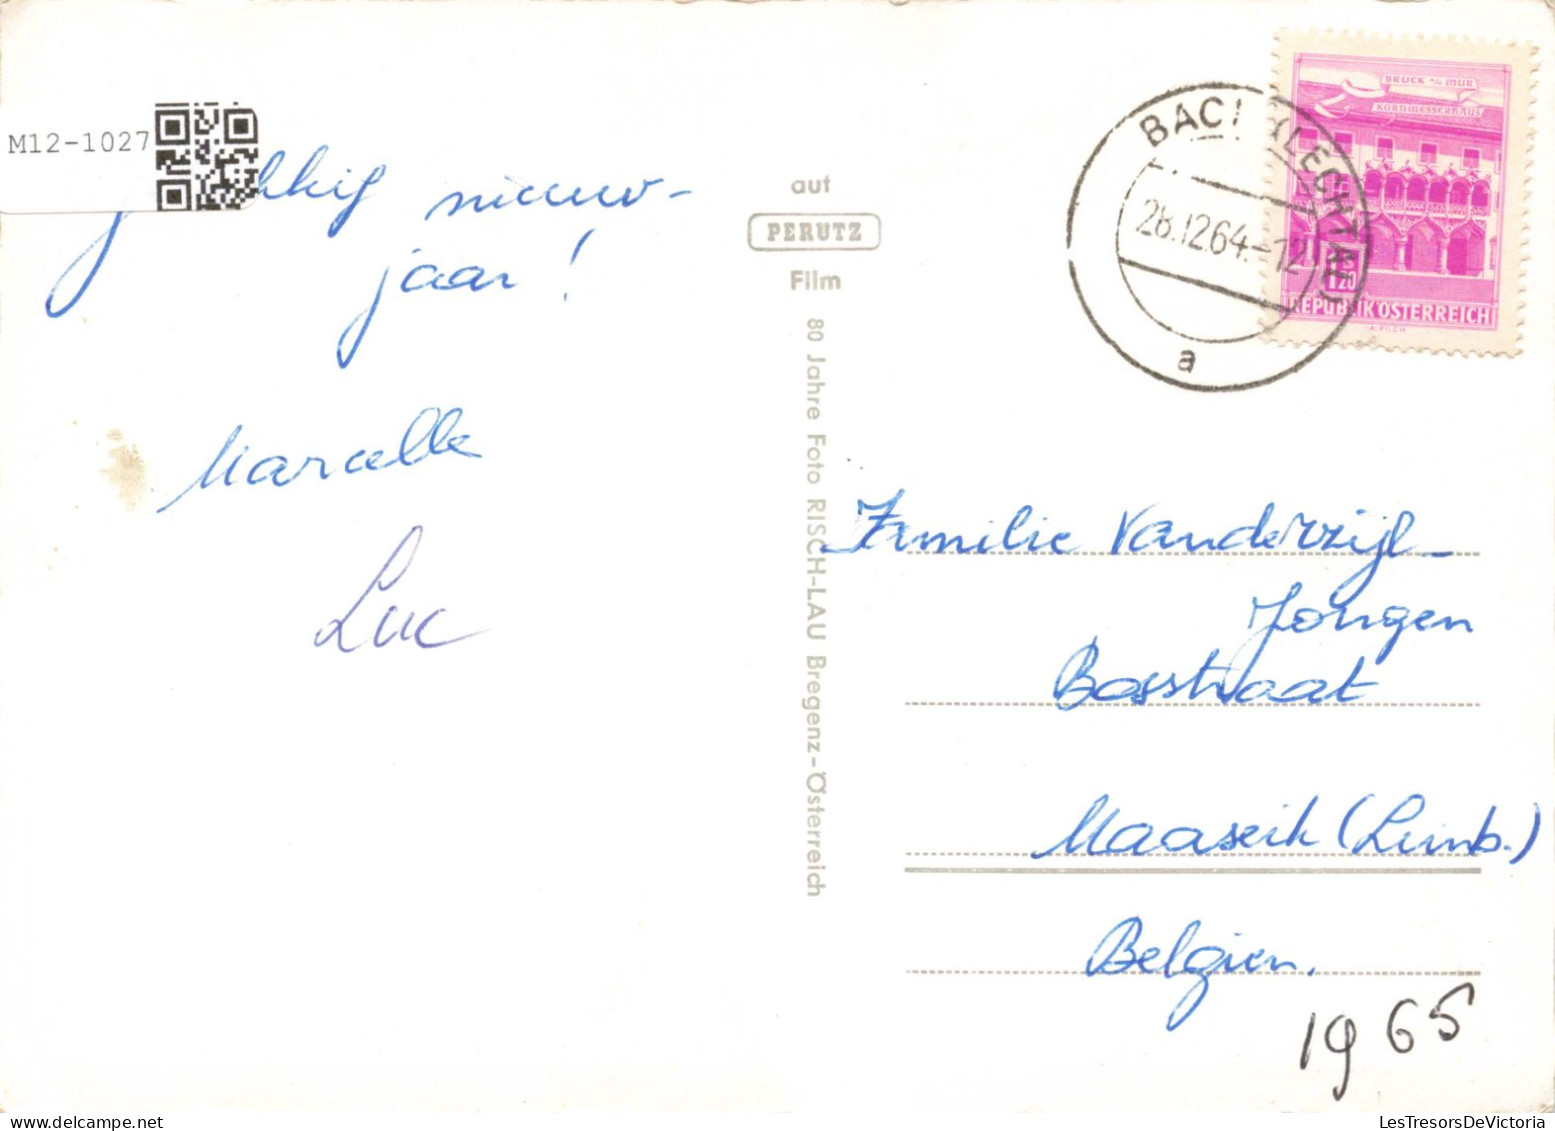 M12-1027
nieuw-
jaar!
Marcelle
Luc
auf
PERUTZ
Film
80 Jahre Foto RISCH-LAU Bregenz-Österreich
(LECHTAL)
28.12.64.-12
a
BRUCK a/d MUR
KORNMESSERHAUS
S
1.20
REPUBLIK ÖSTERREICH
A. PILCH
Familie Vanderzijl-
Jongen
Bosstraat
Maaseik (Limb.)
Belgien.
1965
LesTresorsDeVictoria